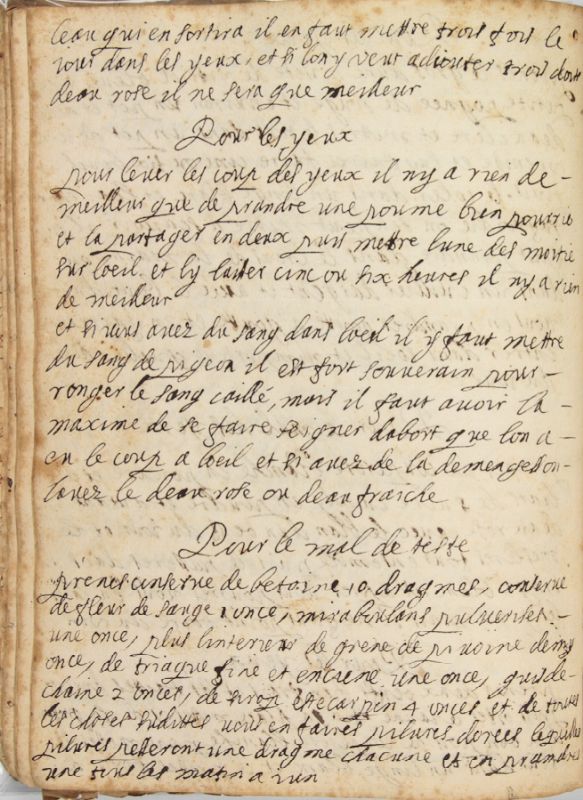 leau qui en sortira il en faut mettre trois fois le
iour dans les yeux, et si lon y veut adiouter trois douts
deau rose il ne sera que meideur
Pour les yeux
pour lever les coup des yeux il ny a rien de-
meilleur que de prandre une poume bien pourrie
et la partager en deux puis mettre lune des moitie
sur loeil et ly laiser cinc ou six heures il ny a rien
de meideur
et si vous avez du sang dans loeil il y faut mettre
du sang de pigeon il est fort souverain pour-
ronger le sang caillé, mais il faut avoir la-
maxime de se faire seigner dabort que lon a-
eu le coup a loeil et si avez de la demengeson-
lavez le deau rose ou deau fraiche
Pour le mal de teste
prenes conserve de betoine 10 dragmes, conserve
de fleur de sauge 1 once, miraboulans pulverises-
une once, plus linterieur de grene de pivoine demy
once, de triaque fine et enciene une once, de-
2 onces, de sirop 4 onces et de toutes
les choses sudittes vous en faires pilures dorees
pilures peseront une dragme chacune et en prandres
une tous les matin a iun